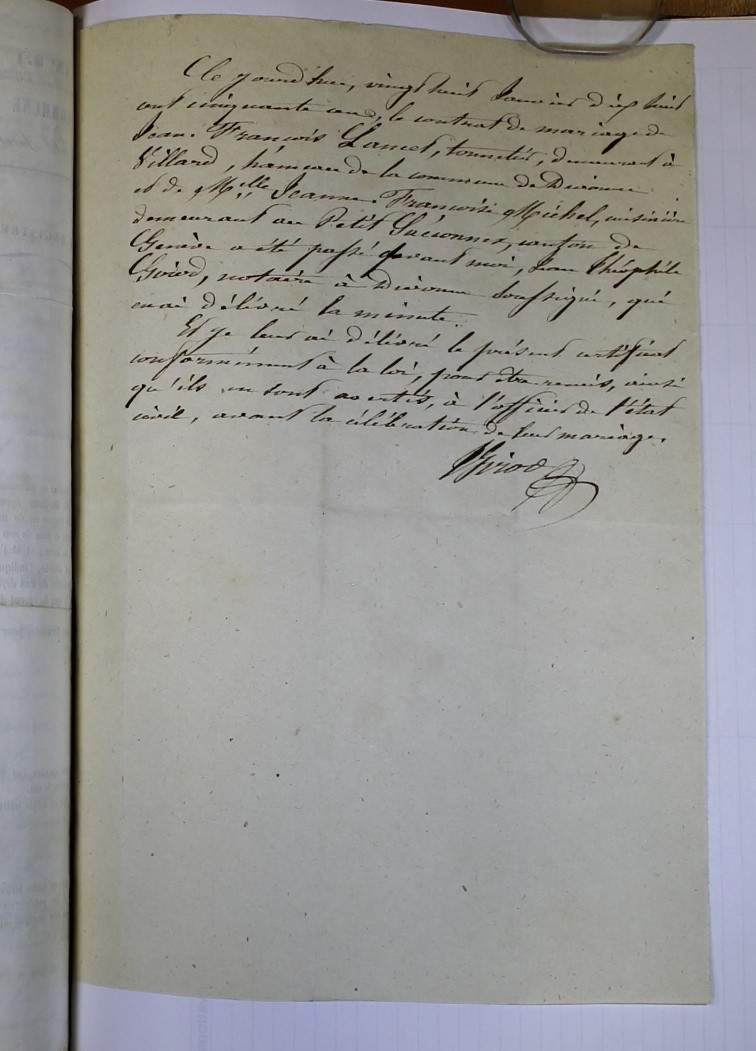 Ce jourd'hui, vingt huit Janvier dix huit
cent cinquante, le contrat de mariage de
Jean-François Lancet, tonnelier, demeurant à
Villard, hameau de la commune de Divonne
et de Mlle Jeanne-Françoise Michel, cuisinière
demeurant au Petit Saconnex, canton de
Genève a été passé devant moi, Jean Théophile
Girod, notaire à Divonne soussigné, qui
en ai délivré la minute.
Et je leur ai délivré le présent certificat
conformément à la loi, pour être remis, ainsi
qu'ils en sont avertis, à l'officier de l'état
civil, avant la célébration de leur mariage.
Girod